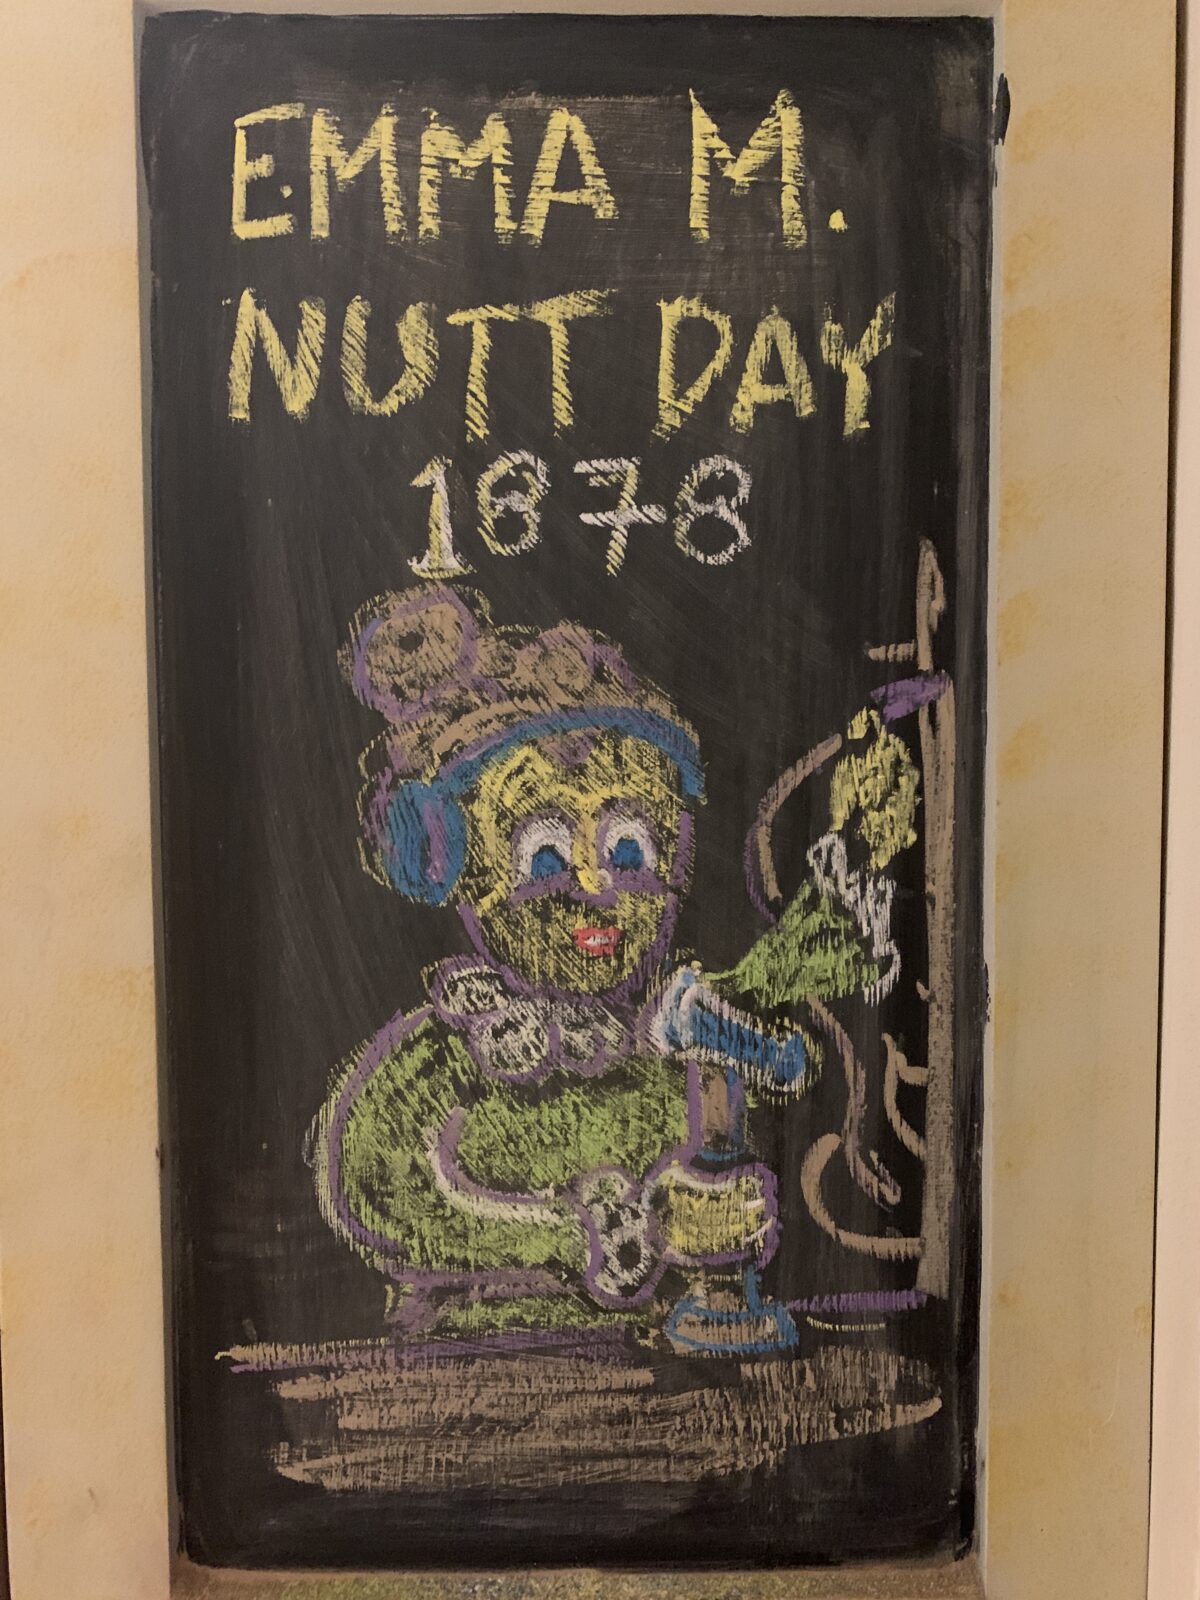 EMMA M.
NUTT DAY
1878